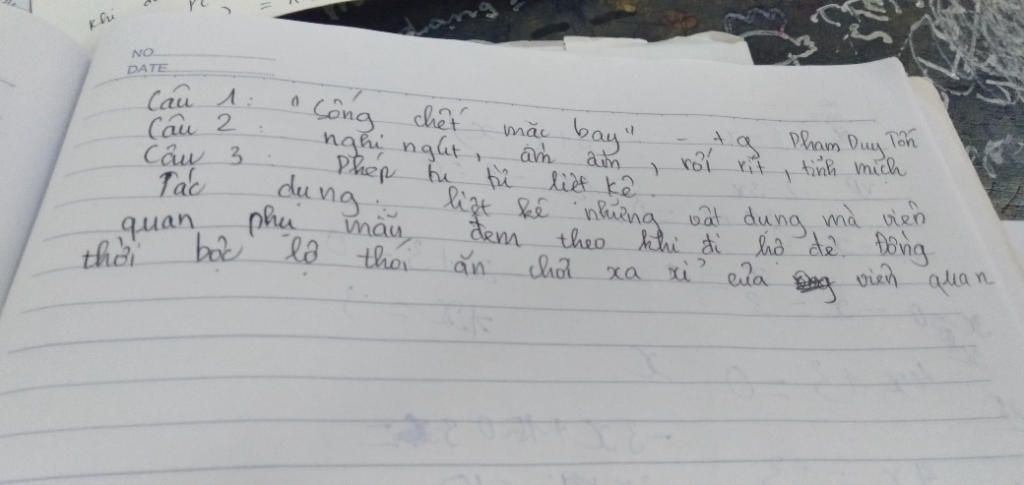 Khi
NO
DATE
Câu 1: "Sống chết mặc bay" - tg Phạm Duy Tốn
Câu 2: nghi ngút, ầm ầm, rối rít, tĩnh mịch
Câu 3: Phép tu từ liệt kê.
Tác dụng: liệt kê những vật dụng mà viên
quan phụ mẫu đem theo khi đi hộ đê. Đồng
thời bộc lộ thói ăn chơi xa xỉ của viên quan